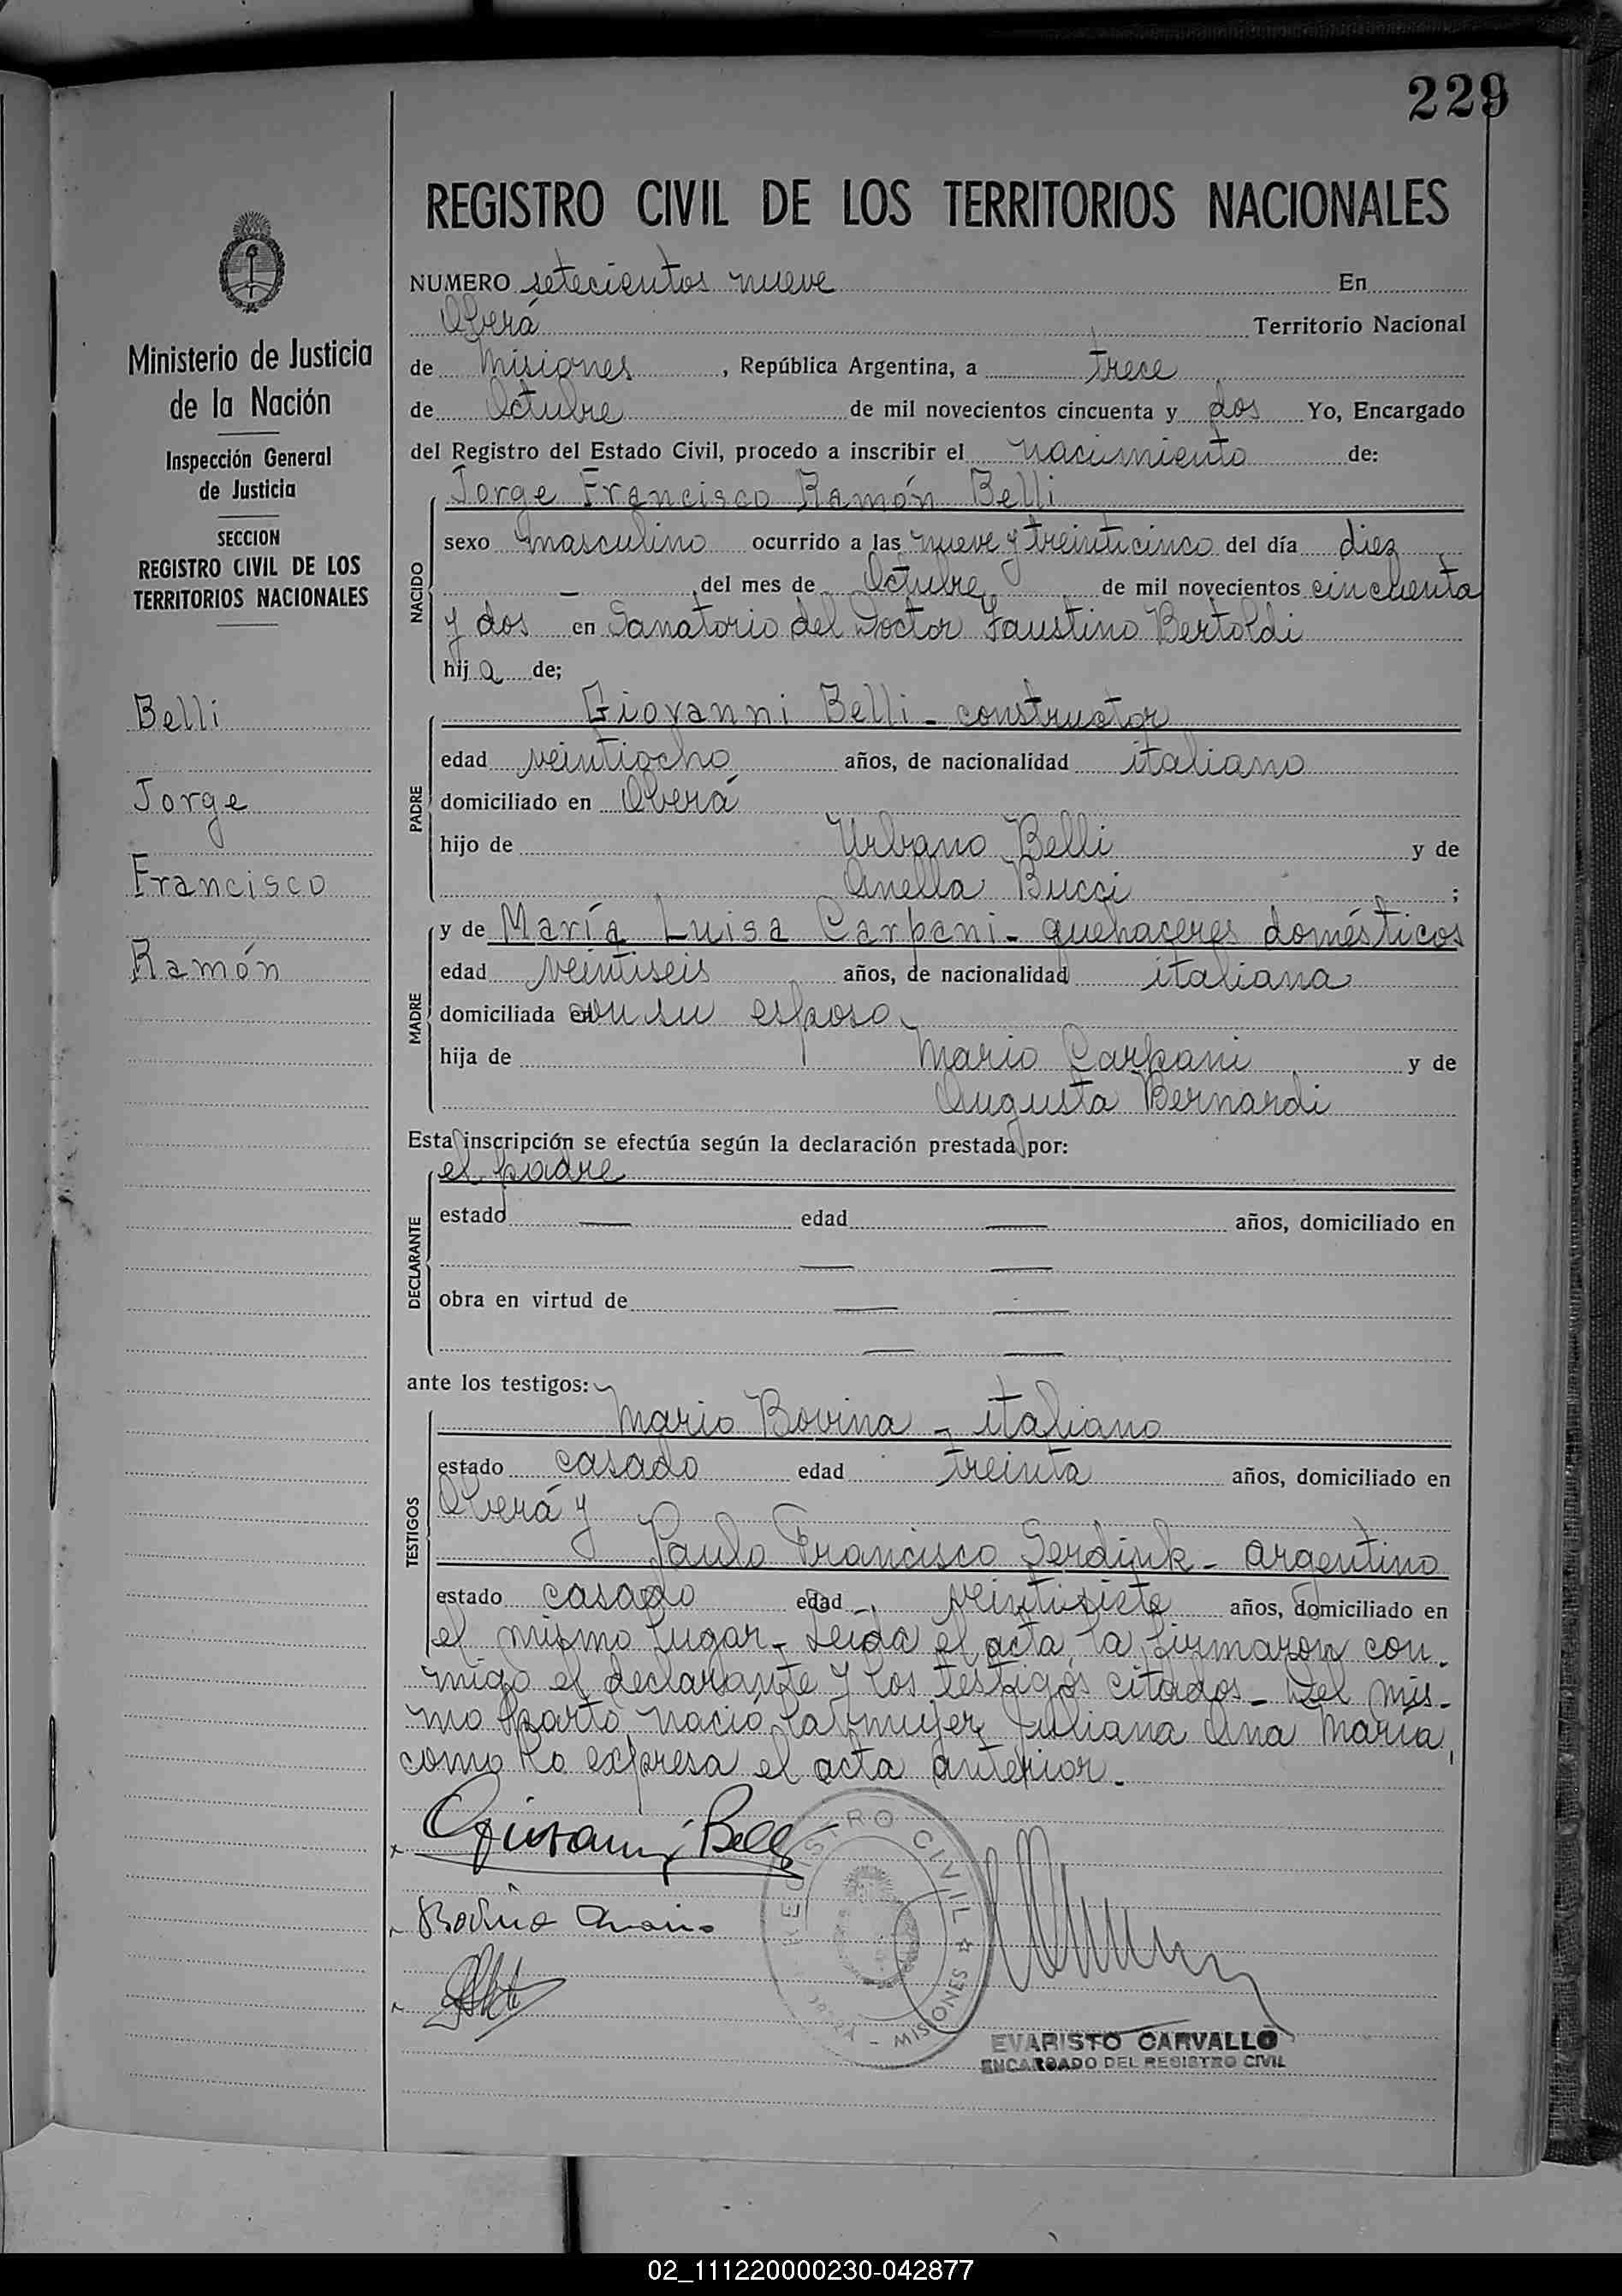 229
REGISTRO CIVIL DE LOS TERRITORIOS NACIONALES
Ministerio de Justicia
de la Nación
Inspección General
de Justicia
SECCION
REGISTRO CIVIL DE LOS
TERRITORIOS NACIONALES
Belli
Jorge
Francisco
Ramón
NUMERO setecientos nueve En
Oberá Territorio Nacional
de Misiones, República Argentina, a trece
de Octubre de mil novecientos cincuenta y dos Yo, Encargado
del Registro del Estado Civil, procedo a inscribir el nacimiento de:
NACIDO
Jorge Francisco Ramón Belli
sexo masculino ocurrido a las nueve y treinticinco del día diez
— del mes de Octubre de mil novecientos cincuenta
y dos en Sanatorio del Doctor Faustino Bertoldi
hij a de;
PADRE
Giovanni Belli - constructor
edad veintiocho años, de nacionalidad italiano
domiciliado en Oberá
hijo de Urbano Belli y de
Anella Bucci ;
MADRE
y de María Luisa Carpani - quehaceres domésticos
edad veintiseis años, de nacionalidad italiana
domiciliada con su esposo
hija de Mario Carpani y de
Augusta Bernardi
Esta inscripción se efectúa según la declaración prestada por:
DECLARANTE
el padre
estado — edad — años, domiciliado en
— —
obra en virtud de — —
— —
ante los testigos:
TESTIGOS
Mario Bovina - italiano
estado casado edad treinta años, domiciliado en
Oberá y
Paulo Francisco Serdiuk - argentino
estado casado edad veintisiete años, domiciliado en
el mismo lugar - Leida el acta, la firmaron con-
migo el declarante y los testigos citados - Del mis-
mo parto nació la mujer Juliana Ana María,
como lo expresa el acta anterior -
Giovanni Belli
Bovina Mario
REGISTRO CIVIL ☆ MISIONES -
EVARISTO CARVALLO
ENCARGADO DEL REGISTRO CIVIL
02_111220000230-042877